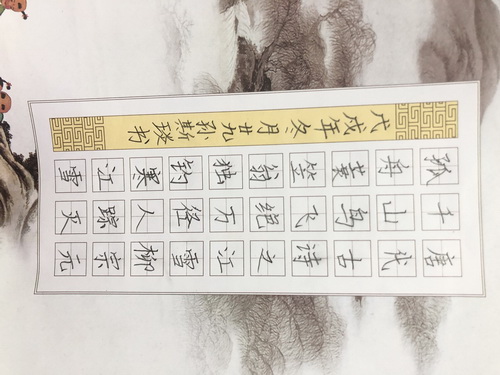 唐代古诗之江雪柳宗元
千山鸟飞绝万径人踪灭
孤舟蓑笠翁独钓寒江雪
戊戌年冬月廿九斯书